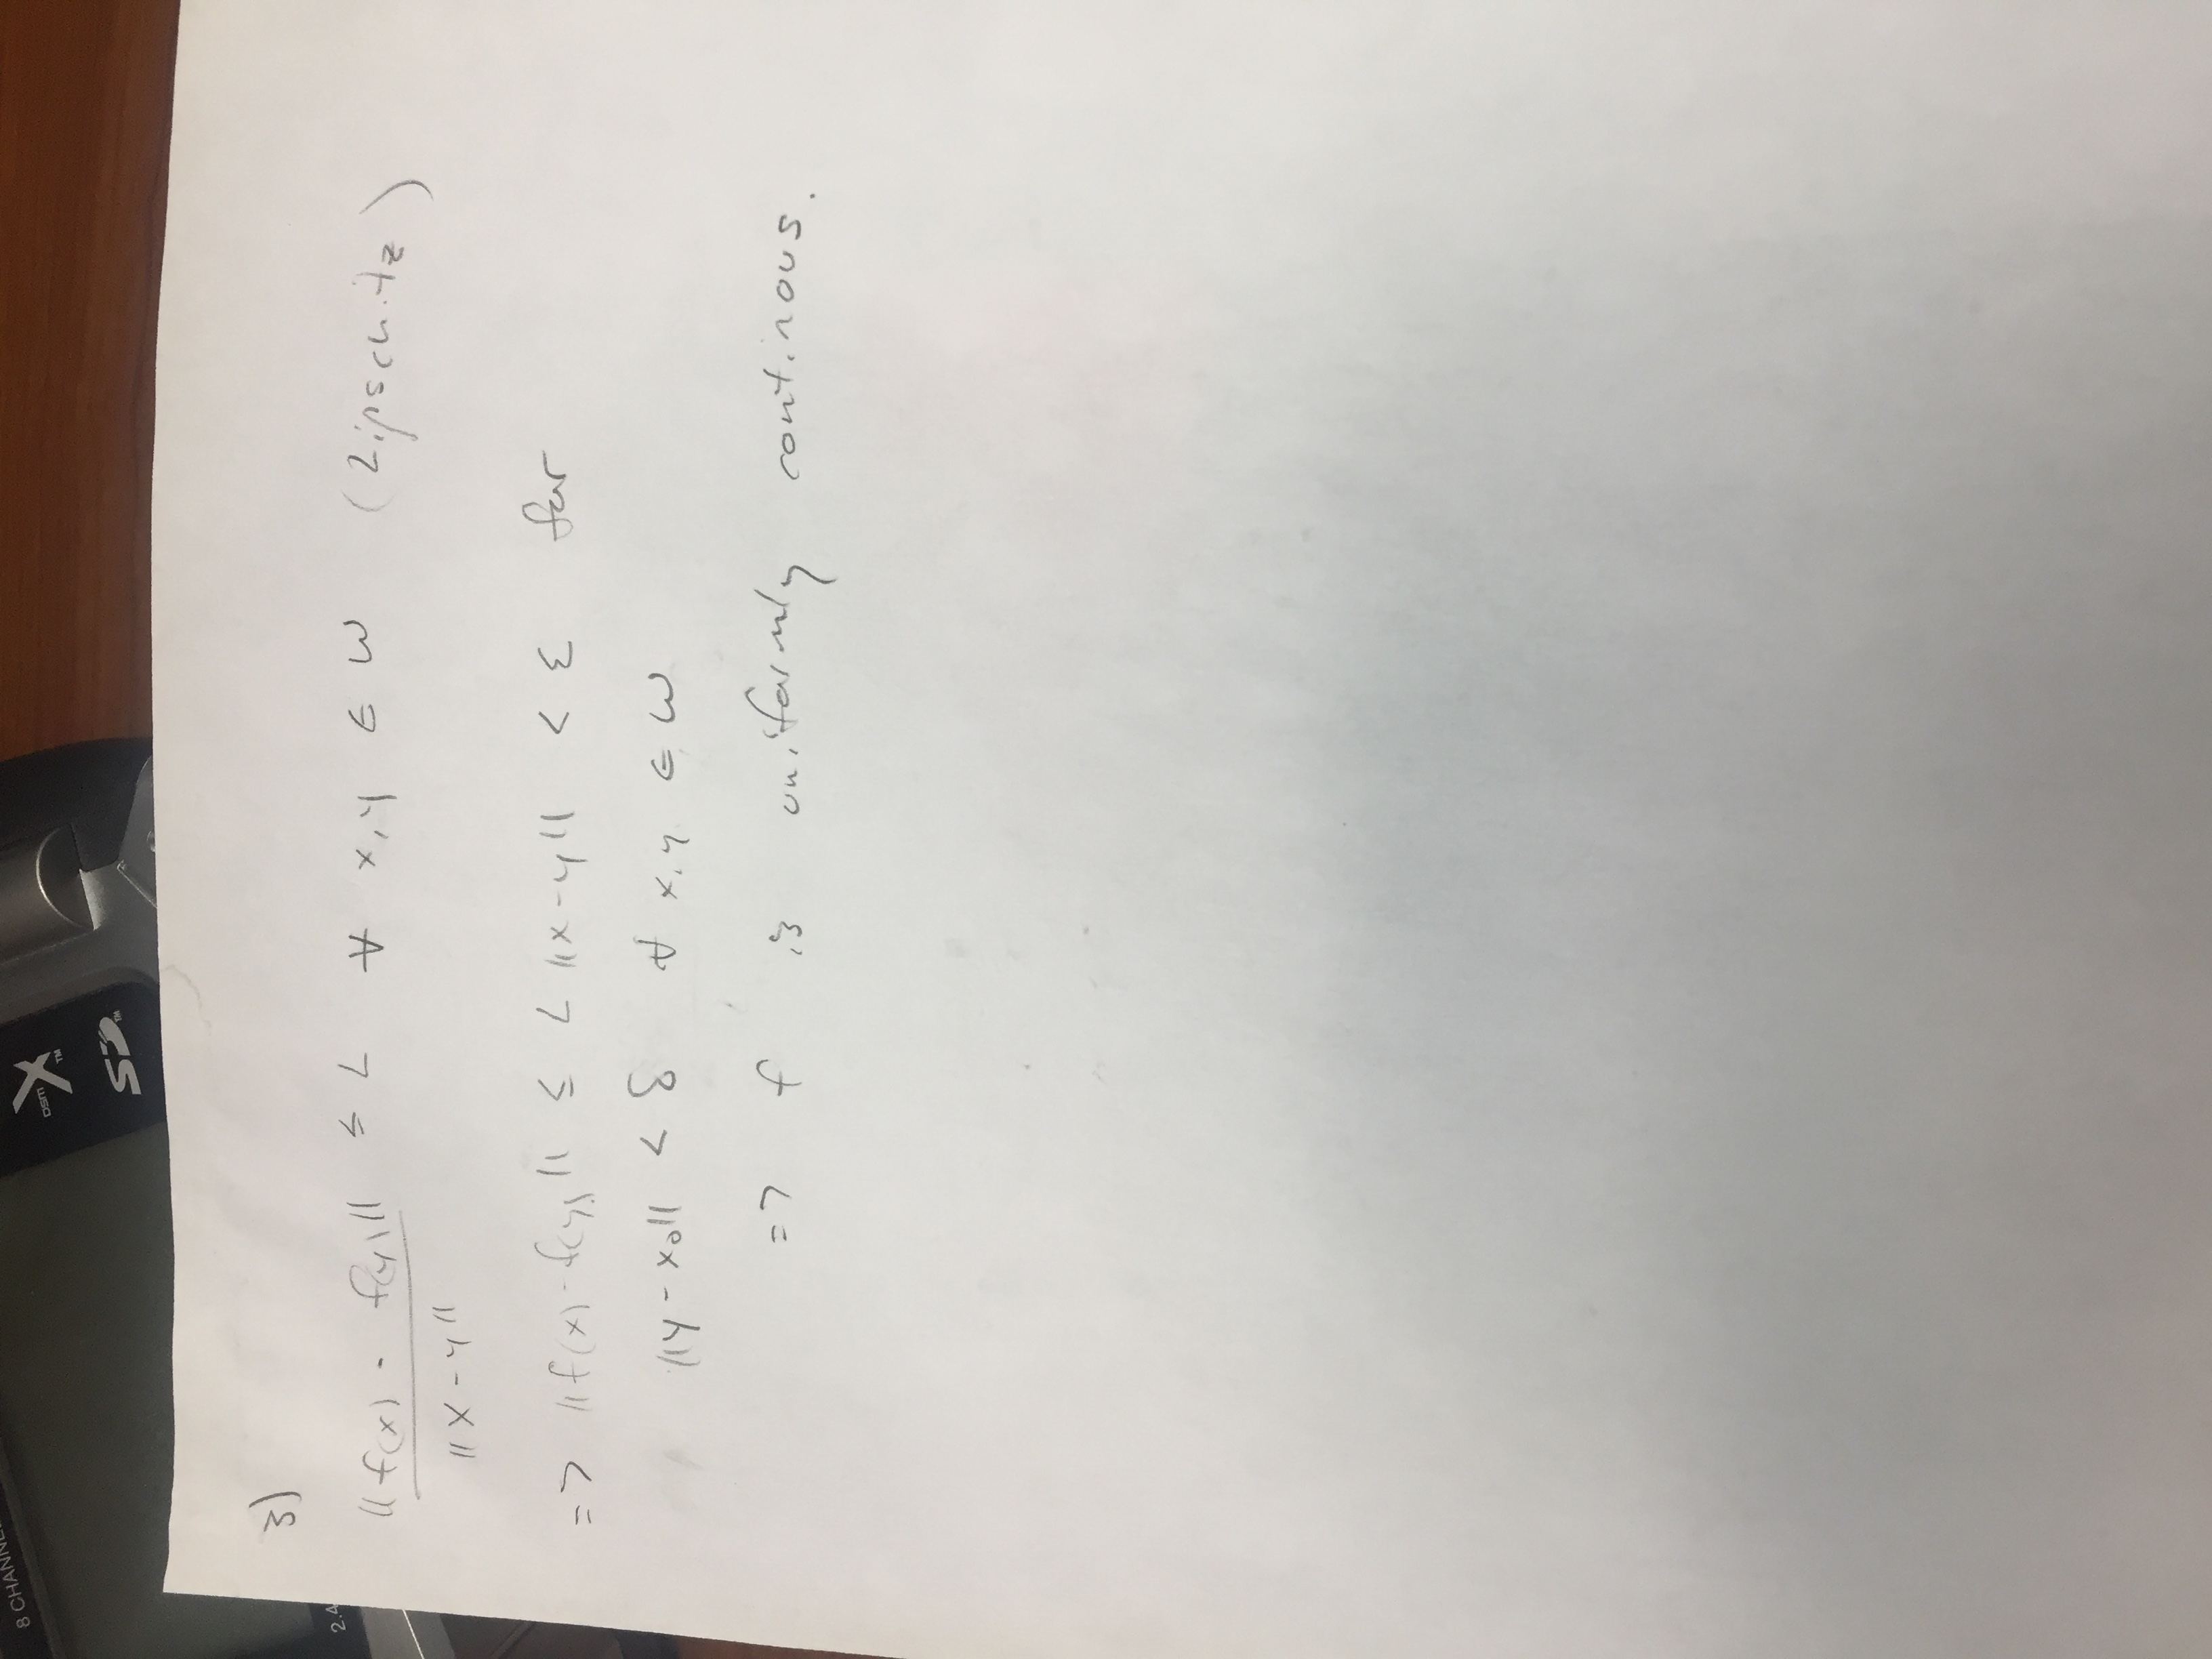 8 CHANNE
DSM X TM
SD TM
2.4
3)
||f(x) - f(y)|| ≤ L ∀ x,y ∈ W (Lipschitz)
||x-y||
=> ||f(x)-f(y)|| ≤ L ||x-y|| < ε for
||y-x₀|| < δ ∀ x,y ∈ W
=> f is uniformly continous.